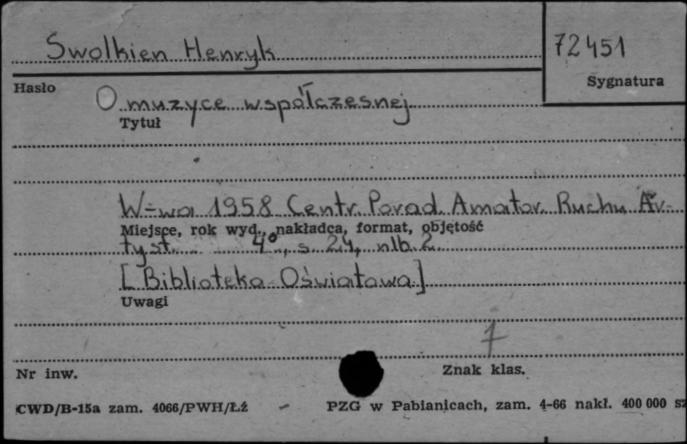 Swolkien Henryk
72451
Hasło
Sygnatura
O muzyce współczesnej
Tytuł
W-wa 1958 Centr. Porad. Amator. Ruchu Ar-
Miejsce, rok wyd., nakładca, format, objętość
tyst. 4°, s. 24, nlb. 2
[Biblioteka Oświatowa]
Uwagi
7
Nr inw.
Znak klas.
CWD/B-15a zam. 4066/PWH/Łź
PZG w Pabianicach, zam. 4-66 nakł. 400 000 sz